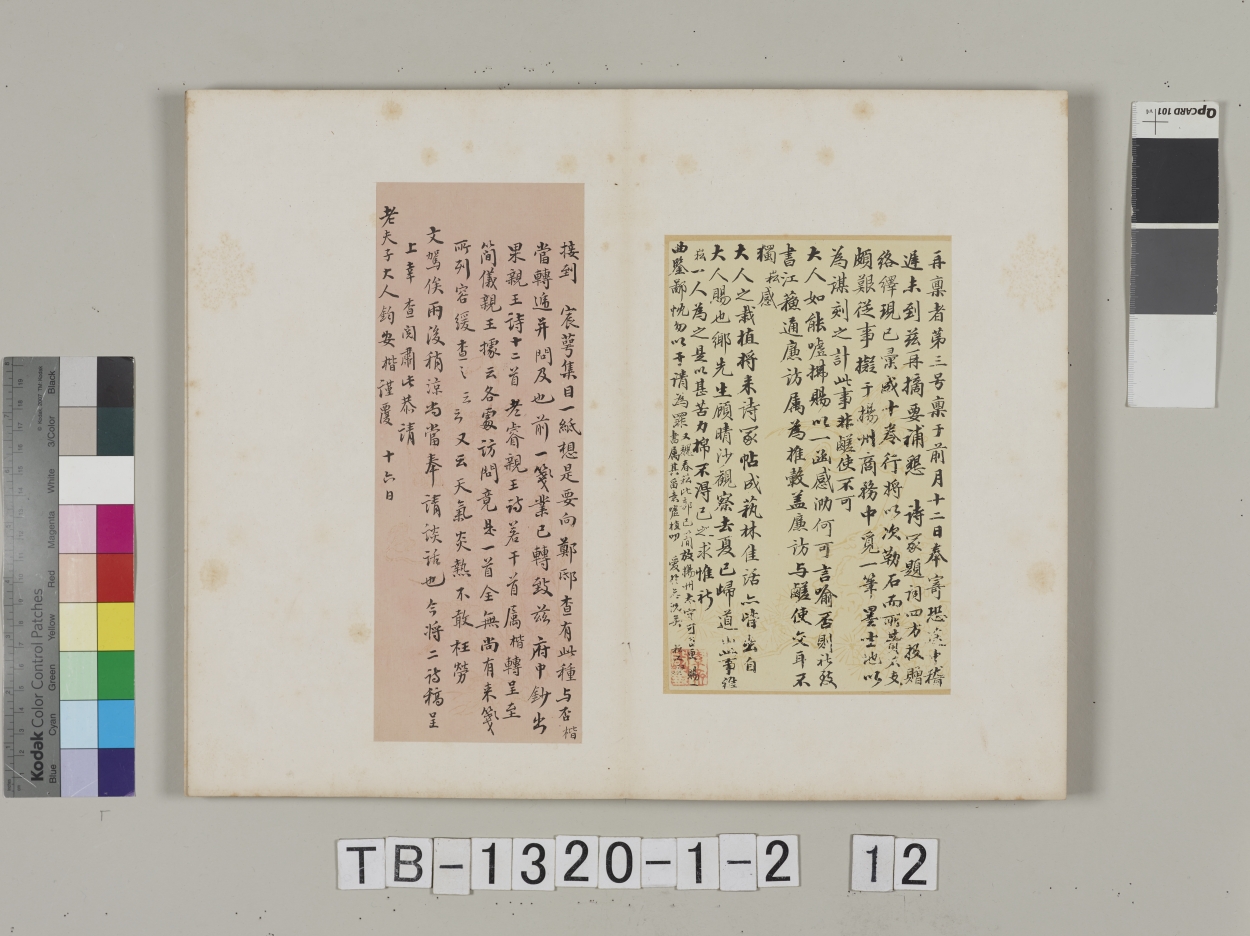 再稟者第三号稟于前月十二日奉寄恐
遲未到茲再摘要補懇 詩冢題詞四方投贈
絡繹現已彙成十卷行將以次勒石而
頗艱從事擬于揚州商務中覓一筆墨之地以
為謀刻之計此事非鹺使不可
大人如能噓拂賜以一函感泐何可言喻否則
書江蘓通廉訪属為推轂盖廉訪与鹺使交耳不
獨崧感
大人之栽植將来詩冢帖成萟林佳話亦皆出自
大人賜也鄉先生顧晴沙觀察去夏已歸道山此事
崧一人為之是以甚苦力棉不得已之求惟祈
曲鑒鄙忱勿以干請為罪
接到 宸萼集目一紙想是要向鄭邸查有此種与否楷
當轉遞并問及也前一箋業已轉致茲府中鈔出
果親王詩十二首 老睿親王詩若干首属楷轉呈至
簡儀親王據云各處訪問竟是一首全無尚有来箋
所列容緩查之云云又云天氣炎熱不敢枉勞
文駕俟雨後稍涼尚當奉請談話也今將二詩稿呈
上幸 查閱肅此恭請
老夫子大人鈞安楷謹覆 十六日
TB-1320-1-2 12
Kodak Color Control Patches
Blue Cyan Green Yellow Red Magenta White 3/Color Black
QpCARD 101